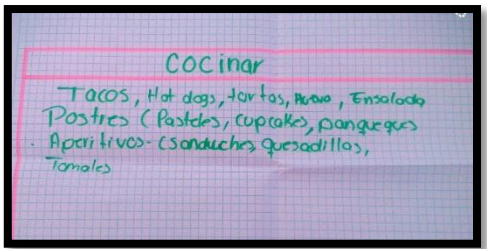 cocinar
Tacos, Hot dogs, tortas, Huevo, Ensalada
Postres (Pasteles, cupcakes, panqueques
. Aperitivos - (sanduches, quesadillas,
Tamales